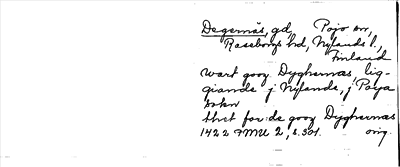 Degernäs, gd, Pojo sn,
Raseborgs hd, Nylands l.,
Finland
wart gooz Dyghernæs, lig-
giande j Nylande, j Poya
sokn
thet for:de gooz Dyghernæs
1422 FMU 2, s. 301. orig.